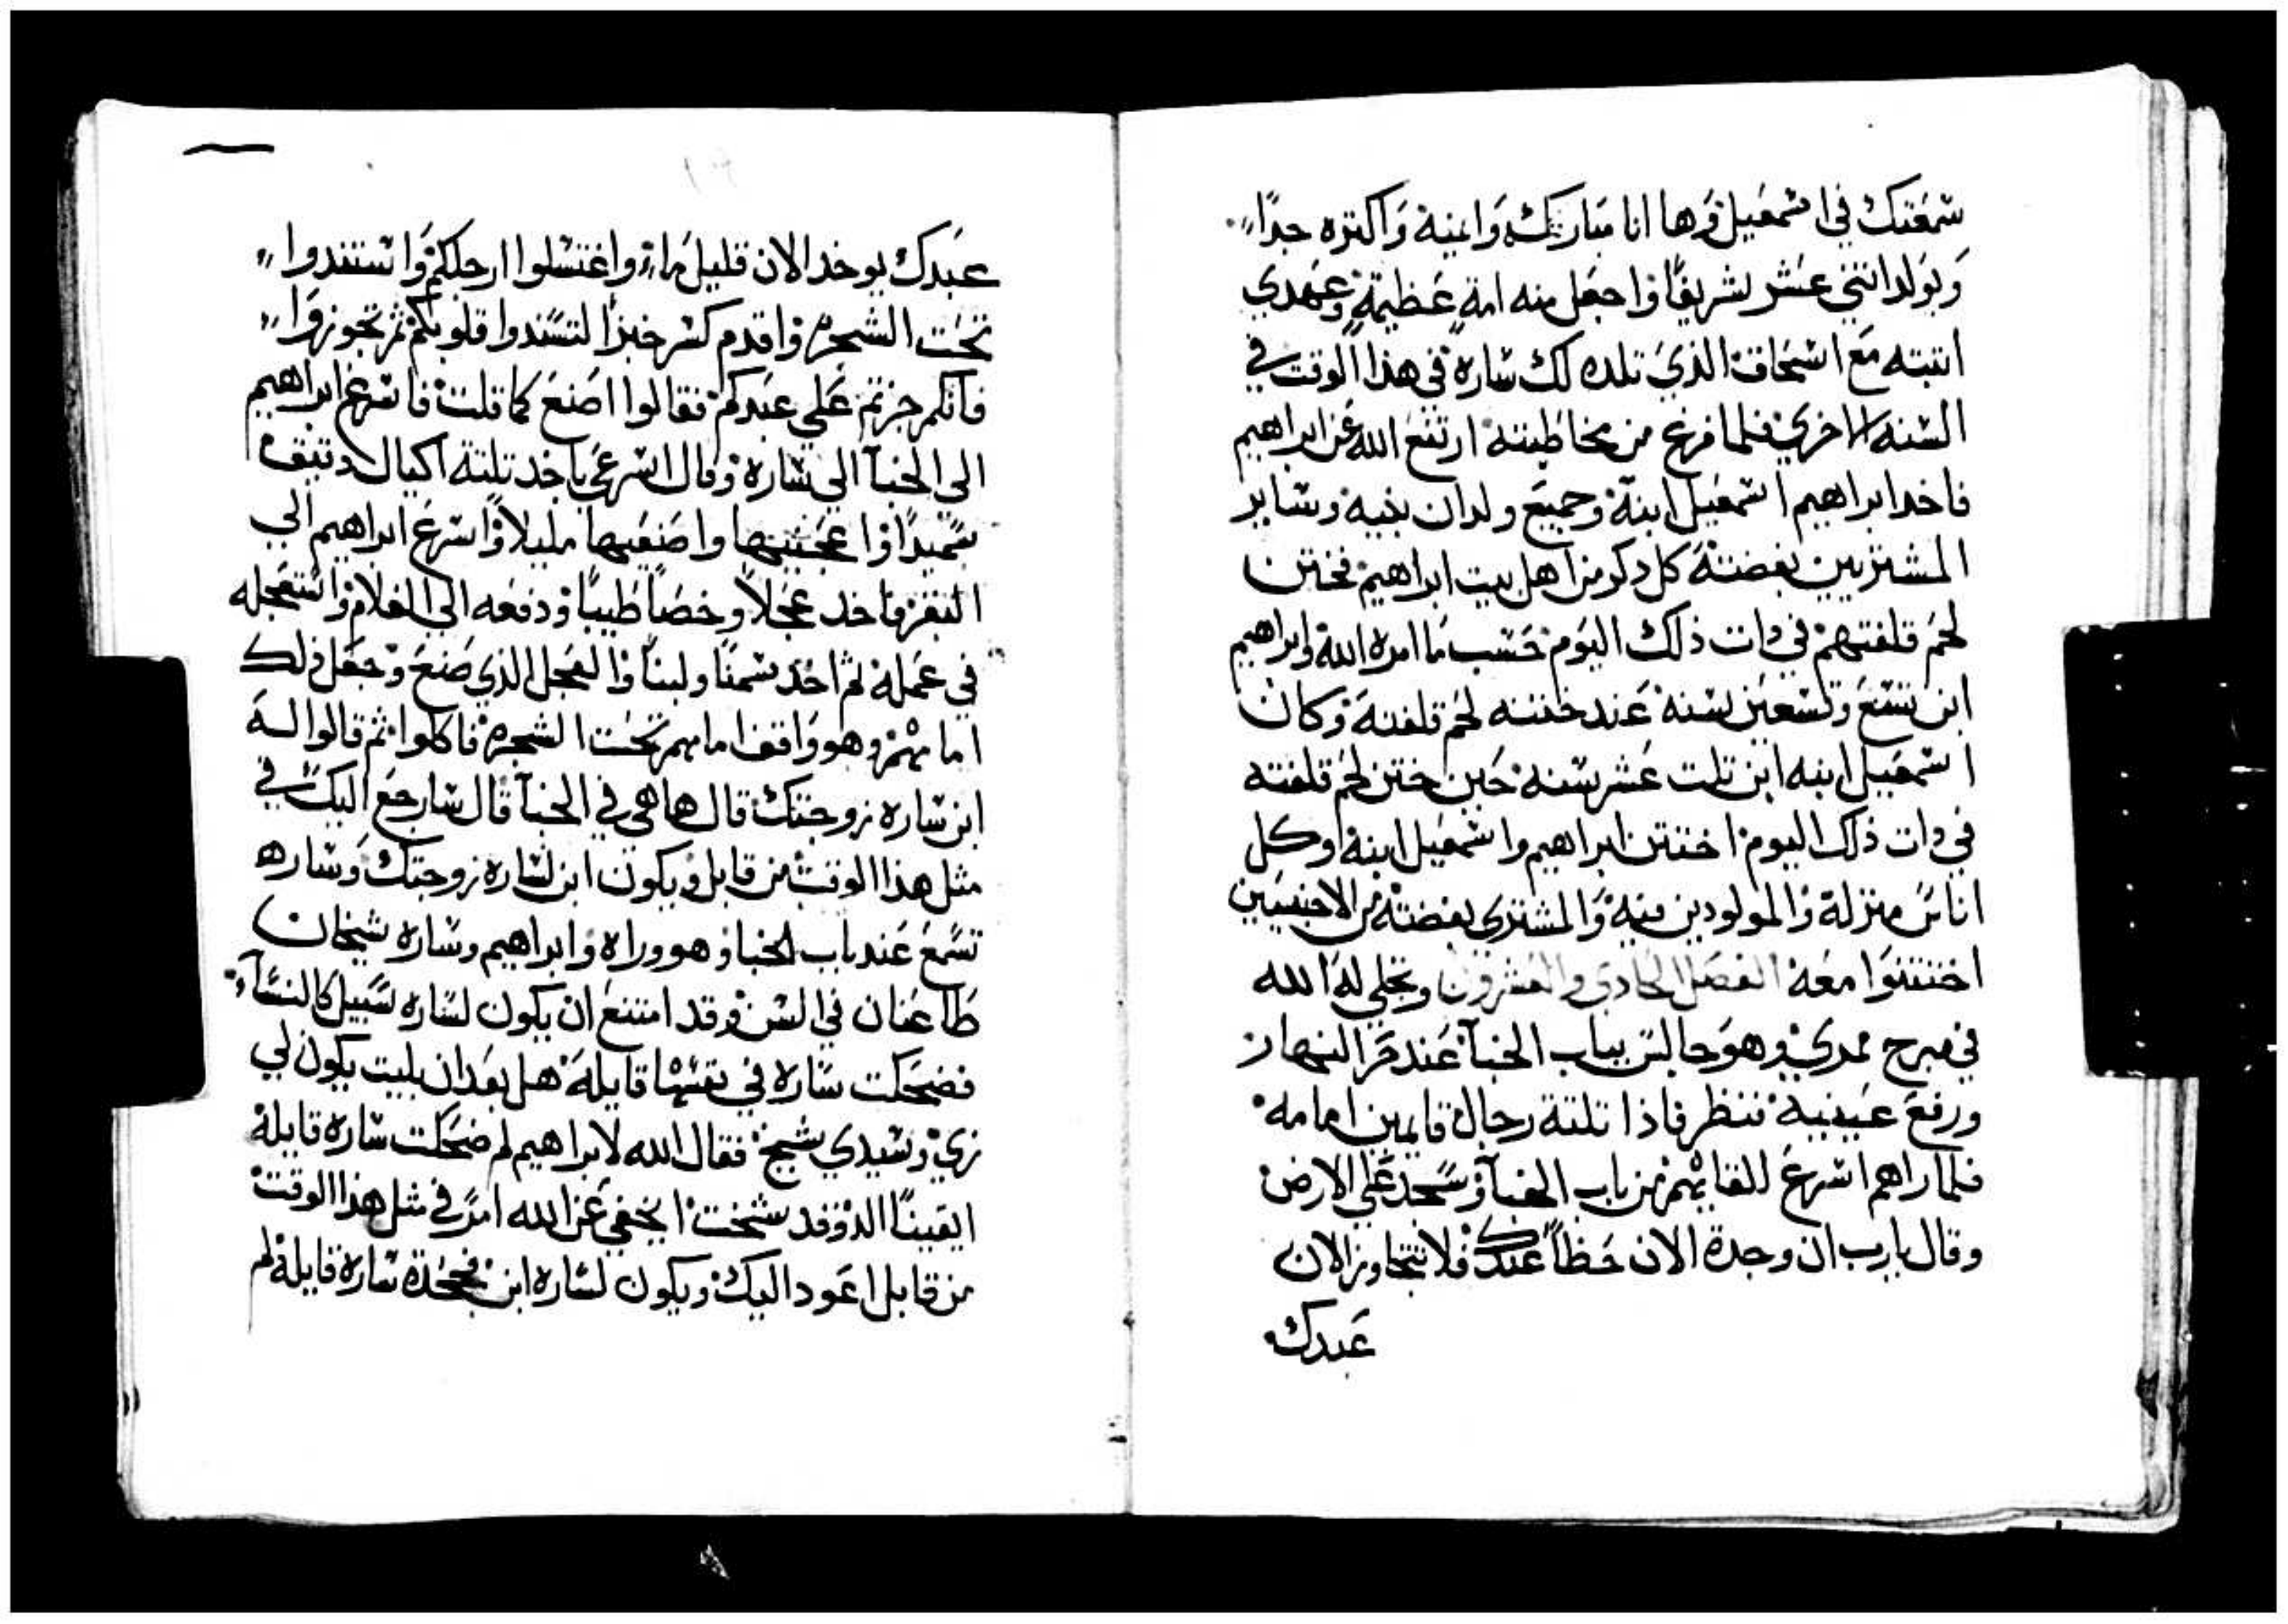 سمعتك في اسمعيل وها انا مباركه وانميه واكتره جدا
ويولد اتني عشر شريفا واجعل منه امة عظيمة وعهدي
اتبته مع اسحاق الذي تلده لك ساره في هذا الوقت في
السنه الاخري فلما فرغ من مخاطبته ارتفع الله عن ابراهيم
فاخد ابراهيم اسمعيل ابنه وجميع ولدان بنيه وساير
المشتريين بفضته كل دكر من اهل بيت ابراهيم فختن
لحم قلفتهم في دات ذلك اليوم حسب ما امره الله وابراهيم
ابن تسع وتسعين سنه عند ختنه لحم قلفته وكان
اسمعيل ابنه ابن تلت عشر سنه حين ختن لحم قلفته
في دات ذلك اليوم اختتن ابراهيم واسمعيل ابنه وكل
اناس منزله والمولودين منه والمشتري بفضته من الاجنبيين
اختتنوا معه الفصل الحادي والعشرون وتجلي له الله
في مرج ممري وهو جالس بباب الخبآ عند حر النهار
ورفع عينيه ننظر فاذا تلتة رجال قايمين امامه
فلما راهم اسرع للقايهم من باب الخبآ وسجد علي الارض
وقال يارب ان وجدة الان حظا عندك فلا تتجاوز الان
عبدك
عبدك يوخد الان قليل ماء واغتسلوا ارجلكم واستندوا
تحت الشجره واقدم كسر خبزا لتسندوا قلوبكم ثم تجوزوا
فانكم جزتم علي عبدكم فقالوا اصنع كما قلت فاسرع ابراهيم
الي الخبآ الي ساره وقال اسرعي باخد تلتة اكيال دقيق
سميدا واعجنيها واصنعيها مليلا واسرع ابراهيم الي
البقر فاخد عجلا رخصا طيبا ودفعه الي الغلام واستعجله
في عمله ثم اخد سمنا ولبنا والعجل الذي صنع وجعل ذلك
امامهم وهو واقف امامهم تحت الشجره فاكلوا ثم قالوا له
اين ساره زوجتك قال ها هي في الخبآ قال سارجع اليك في
مثل هذا الوقت من قابل ويكون ابن لساره زوجتك وساره
تسمع عند باب الخبا وهو وراه وابراهيم وساره شيخان
طاعنان في السن وقد امتنع ان يكون لساره سبيل كالنسآء
فضحكت ساره في نفسها قايلة هل بعد ان بليت يكون لي
زي وسيدي شيخ فقال الله لابراهيم لم ضحكت ساره قايلة
ايقينا الد وقد شخت ايخفي عن الله امر في مثل هذا الوقت
من قابل اعود اليك ويكون لساره ابن فجحدة ساره قايلة لم